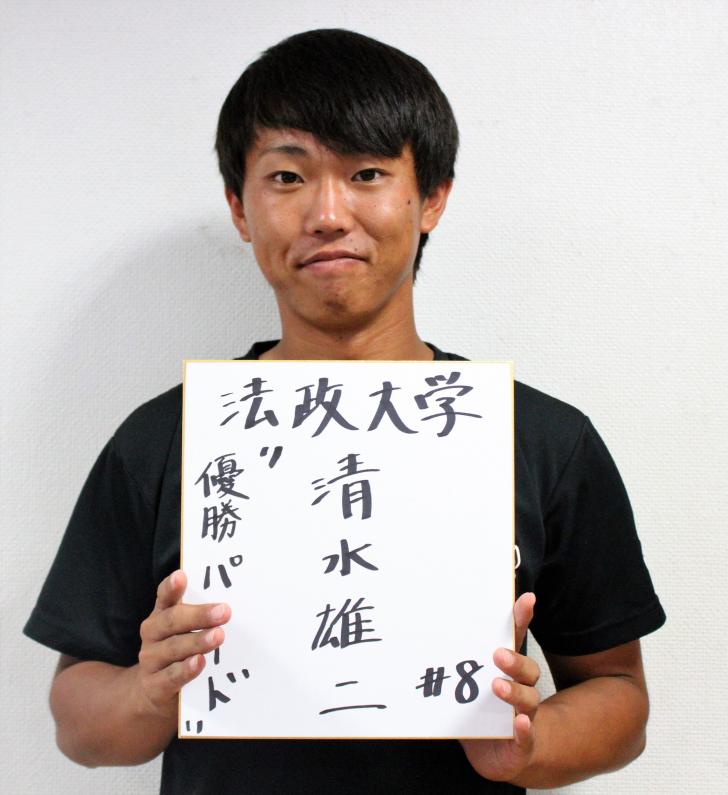 法政大学
清水雄二
#8
"優勝パレード"